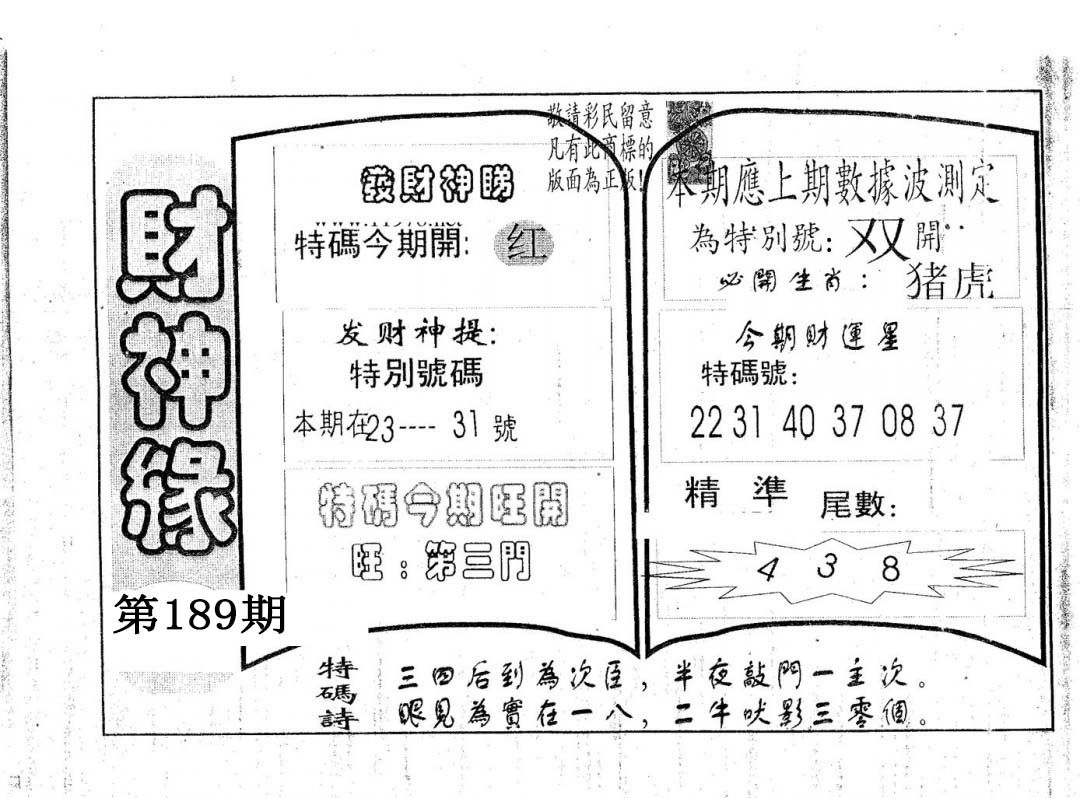 財神緣
第189期
敬請彩民留意
凡有此商標的
版面為正版!
發財神睇
特碼今期開: 红
发财神提:
特別號碼
本期在23---- 31 號
特碼今期旺開
旺:第三門
本期應上期數據波測定
為特別號: 双 開
必開生肖: 猪虎
今期財運星
特碼號:
22 31 40 37 08 37
精 準 尾數:
4 3 8
特碼詩
三四后到為次臣,半夜敲門一主次。
眼見為實在一八,二牛吠影三零個。